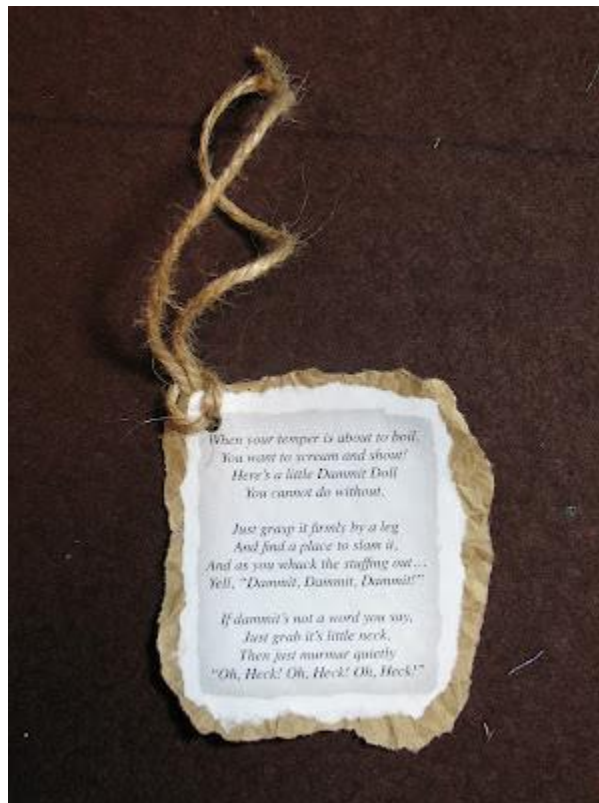 When your temper is about to boil,
You want to scream and shout!
Here's a little Dammit Doll
You cannot do without.
Just grasp it firmly by a leg
And find a place to slam it,
And as you whack the stuffing out…
Yell, "Dammit, Dammit, Dammit!"
If dammit's not a word you say,
Just grab it's little neck,
Then just murmur quietly
"Oh, Heck! Oh, Heck! Oh, Heck!"